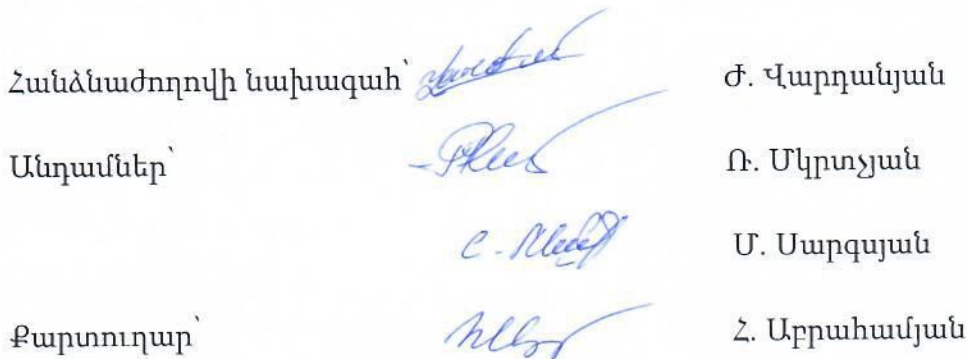 Հանձնաժողովի նախագահ՝ Ժ. Վարդանյան
Անդամներ՝ Ռ. Մկրտչյան
Մ. Սարգսյան
Քարտուղար՝ Հ. Աբրահամյան